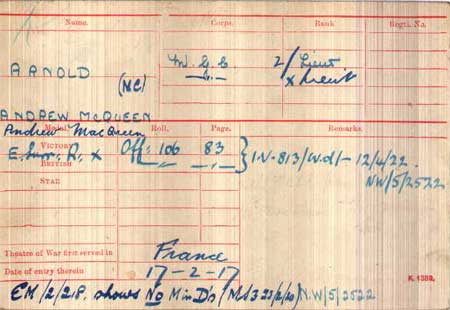 Corps. Rank Regtl. No.
ARNOLD (MC) M.G.C 2/Lieut
x Lieut
ANDREW MCQUEEN
Andrew MacQueen
Medal. Roll. Page. Remarks.
VICTORY Off: 106 83 } I.V-813/W.d/- 12/4/22.
E. Surr: R. x
BRITISH " " NW/5/2522
STAR
Theatre of War first served in France
Date of entry therein 17-2-17 K. 1380.
EM/2/218. shows No M in D's (MS3 23/2/20) N.W/5/2522